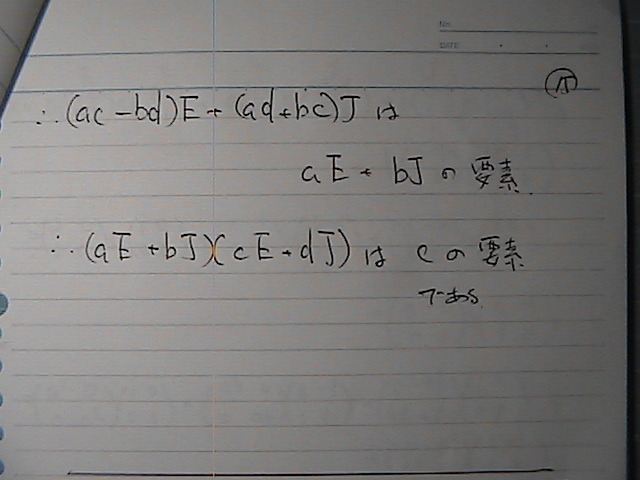 No.
DATE
⑮
∴(ac-bd)E+(ad+bc)Jは
aE+bJの要素.
∴(aE+bJ)(cE+dJ)はCの要素
である